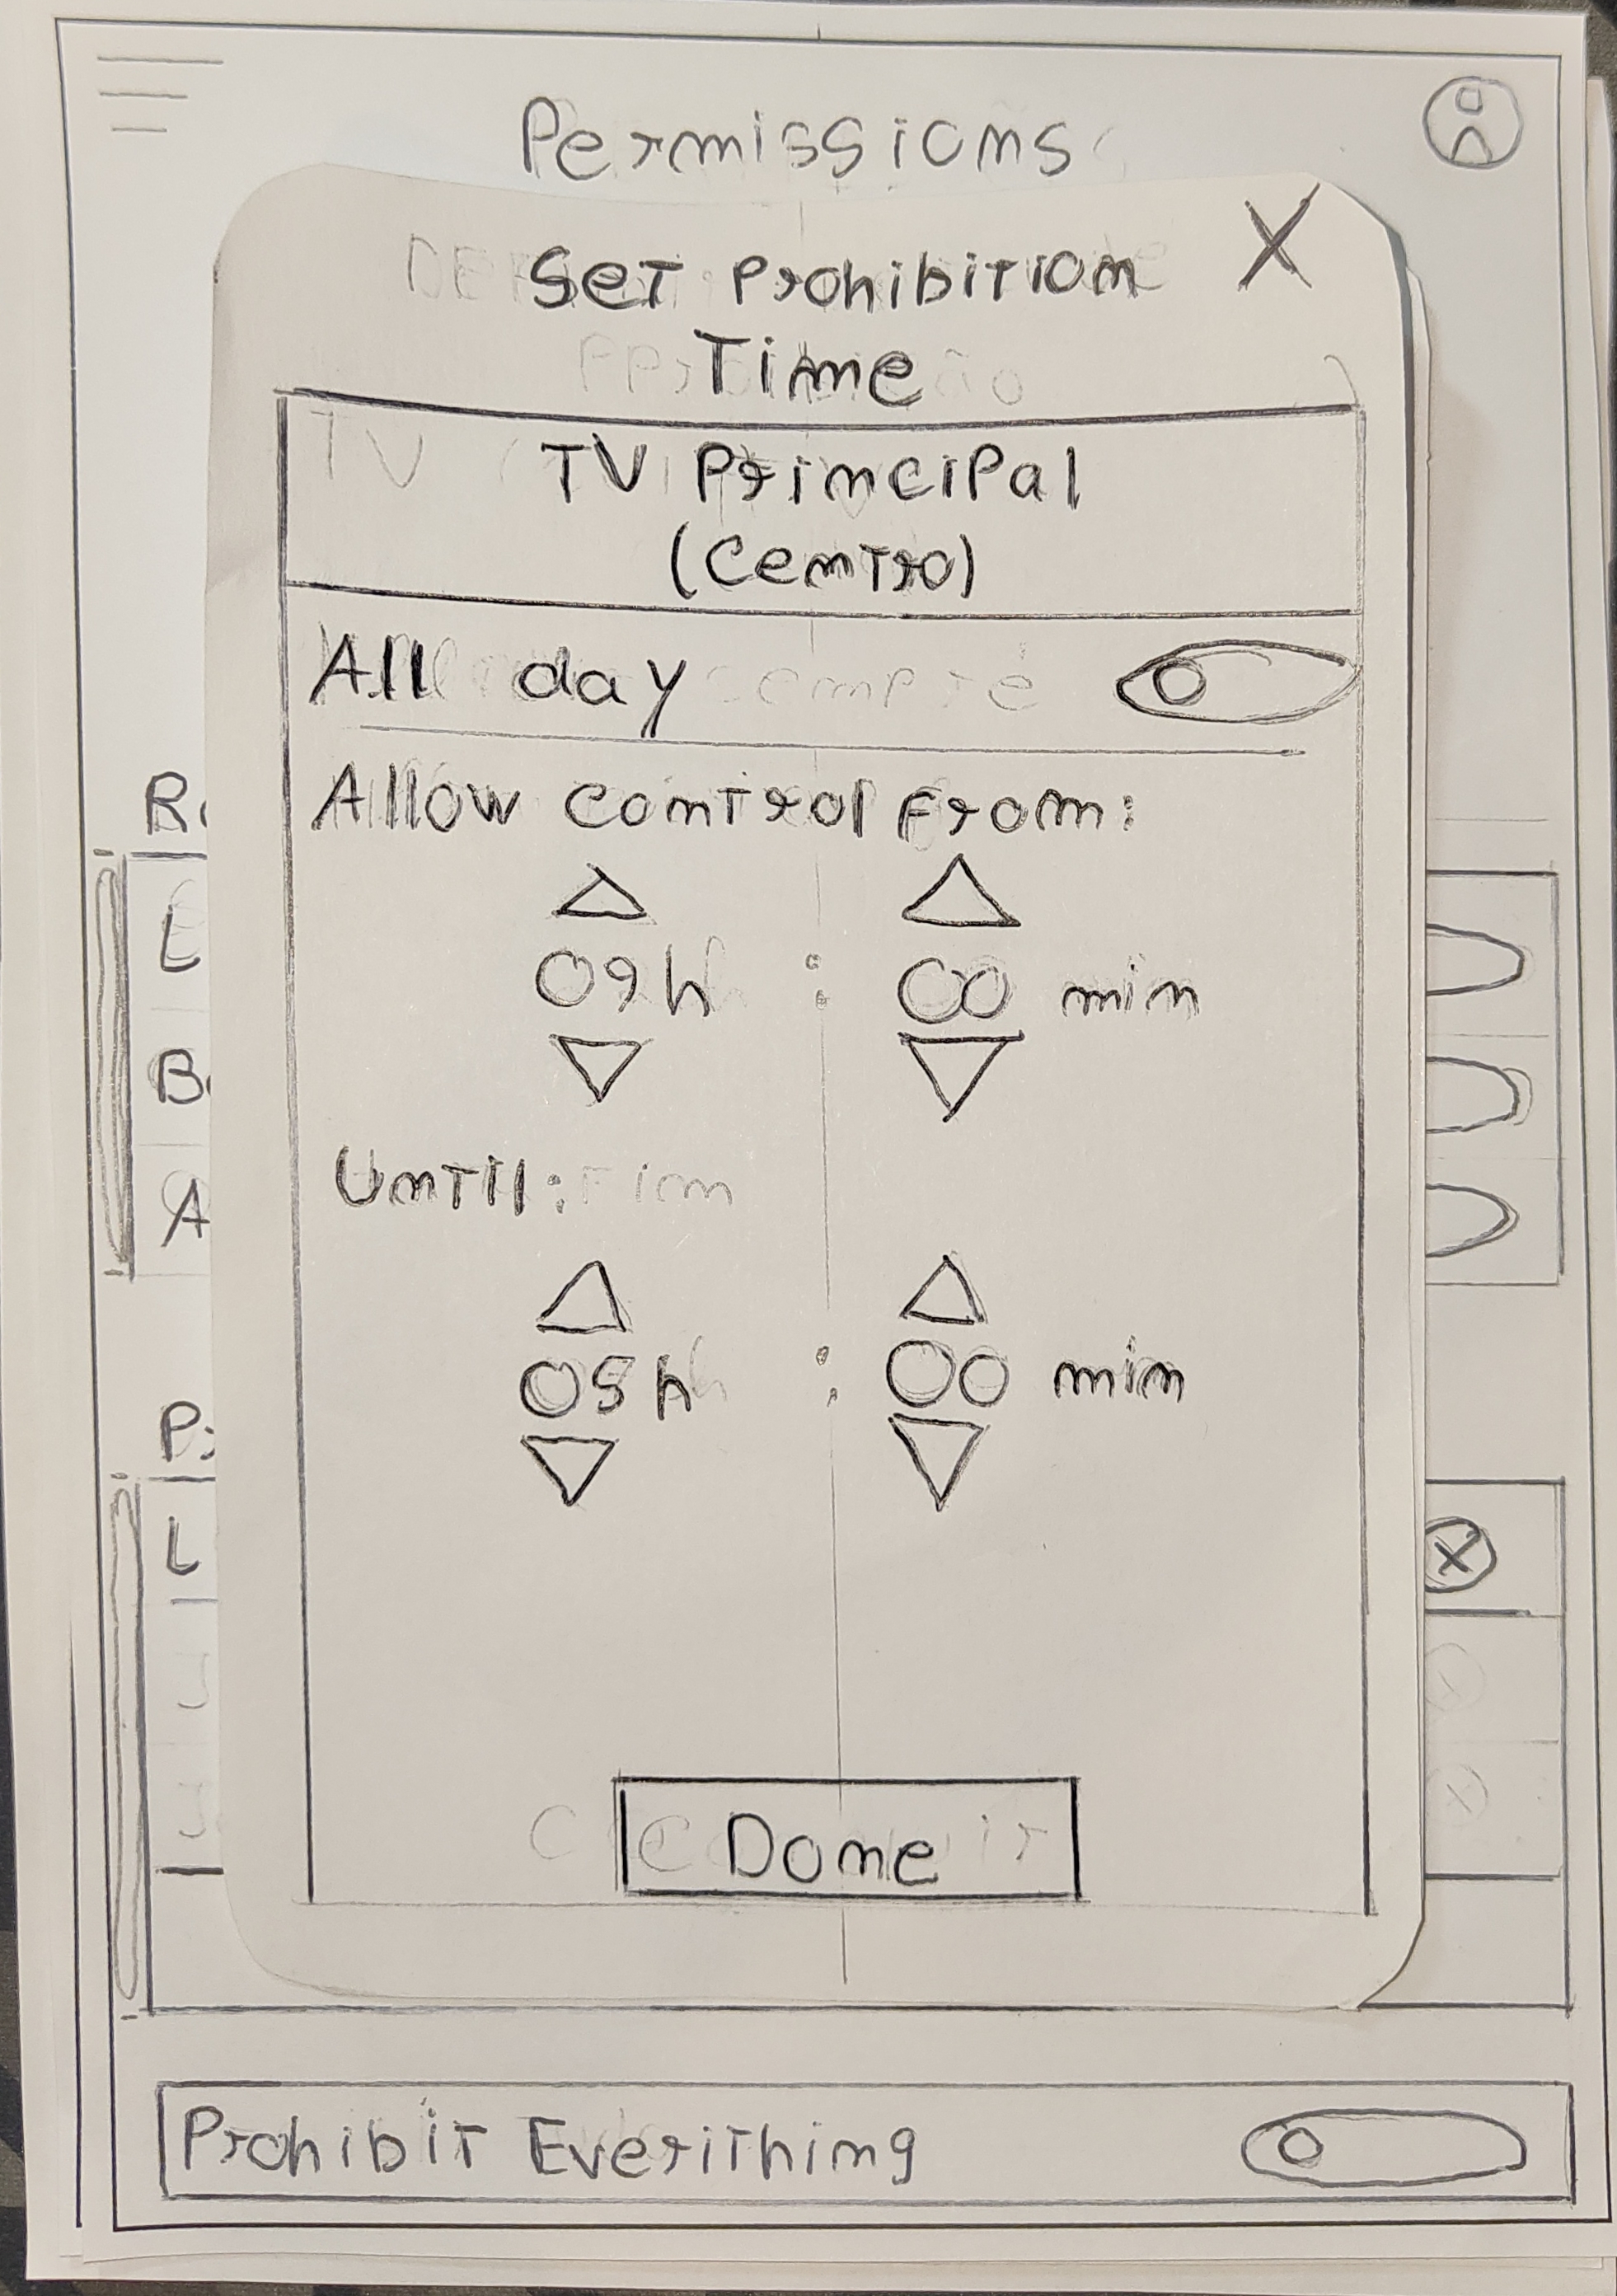 Permissions
Set Prohibition
Time
X
TV Principal
(Centro)
All day
Allow control From:
09h : 00 min
Until:
05h : 00 min
Done
Prohibit Everithing